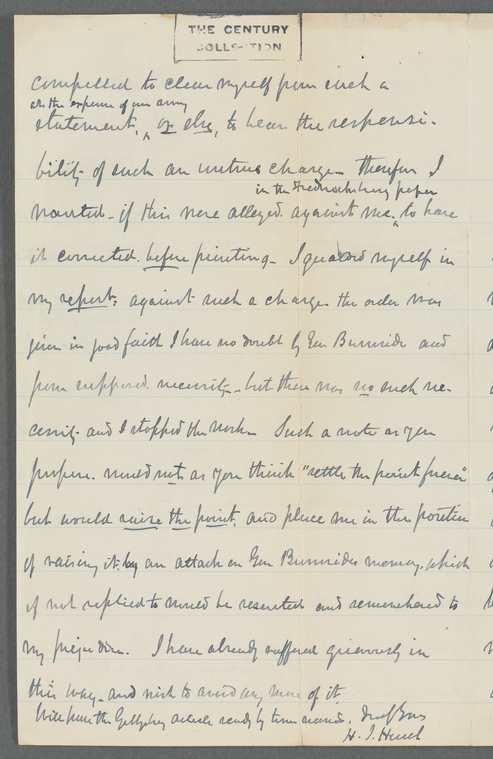 THE CENTURY
COLLECTION
compelled to clear myself from such a
at the expense of our army
statement, ^ or else, to bear the responsi-
bility of such an untrue charge - therefore I
in the Fredricksburg paper
wanted - if this were alleged against me, ^ to have
it corrected before printing - I guarded myself in
my report, against such a charge the order was
given in good faith I have no doubt by Gen Burnside and
from supposed necessity - but there was no such ne-
cessity and I stopped the work - Such a note as you
propose would not as you think "settle the point forever"
but would raise the point, and place me in the position
of raising it by an attack on Gen Burnsides memory, which
if not replied to would be resented and remembered to
my prejudice. I have already suffered grievously in
this way - and wish to avoid any more of it.
Will have the Gettysbg article ready by time named.
H. J. Hunt